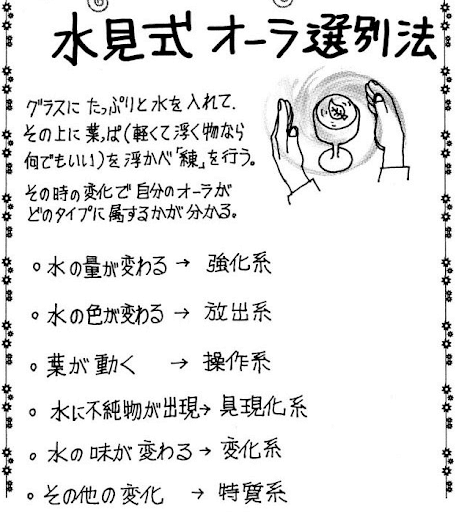 水見式オーラ選別法
グラスに たっぷりと 水を 入れて、
その上に葉っぱ(軽くて浮く物なら
何でもいい)を浮かべ「練」を行う。
その時の変化で自分のオーラが
どのタイプに属するかが分かる。
○水の量が変わる→ 強化系
○水の色が変わる→ 放出系
○葉が動く → 操作系
○水に不純物が出現→具現化系
○水の味が変わる→変化系
○その他の変化 → 特質系